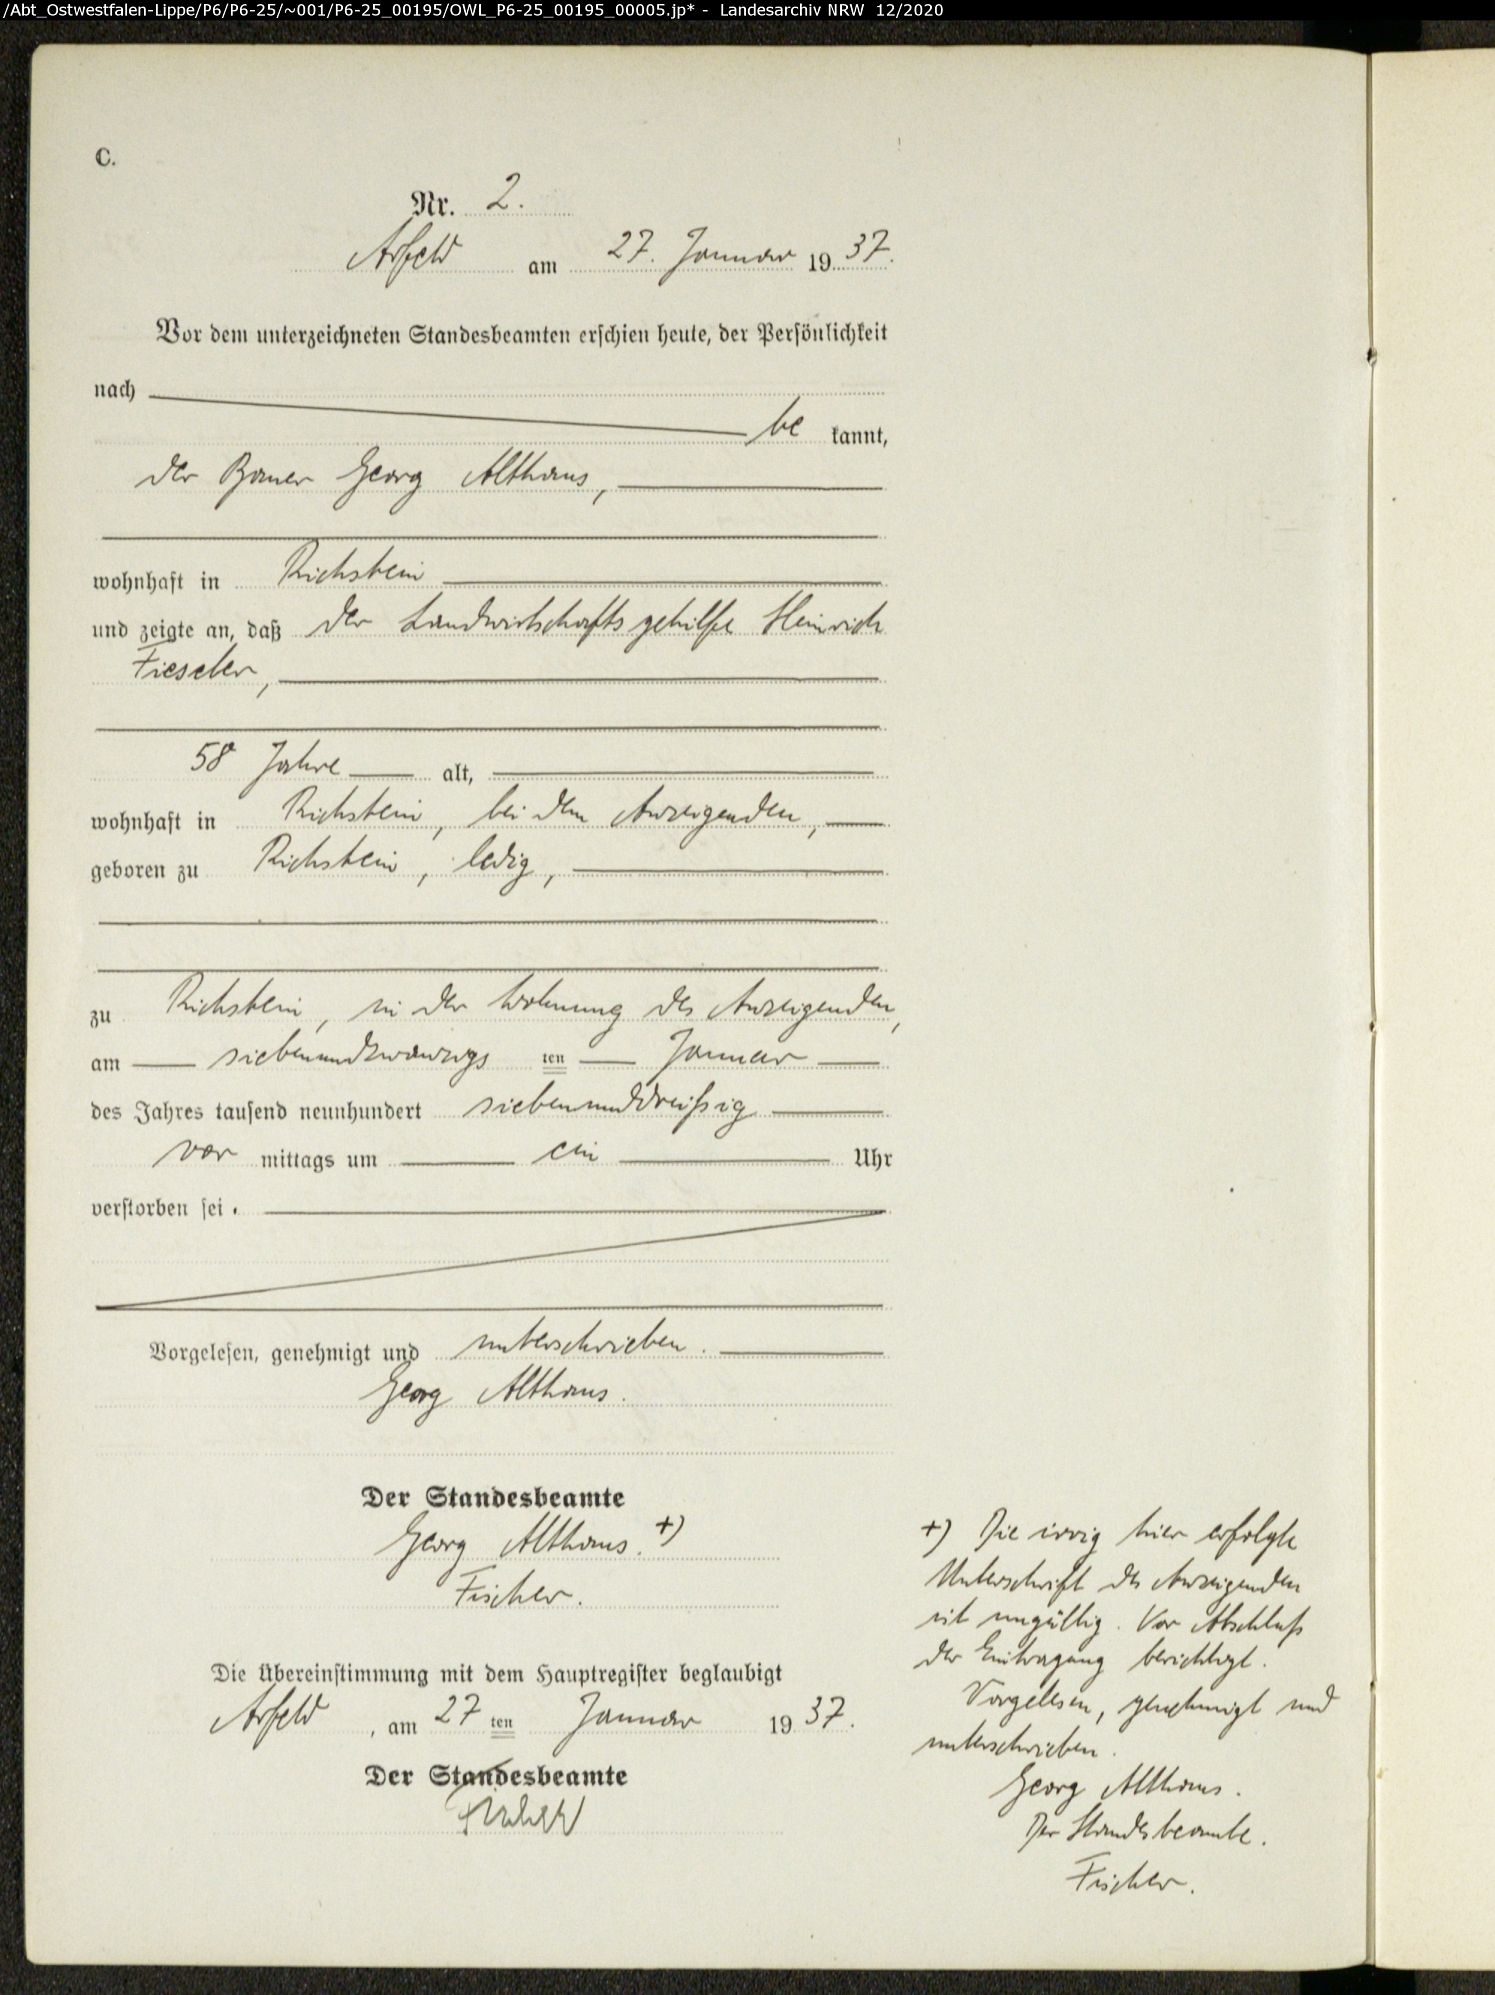 /Abt_Ostwestfalen-Lippe/P6/P6-25/~001/P6-25_00195/OWL_P6-25_00195_00005.jp* - Landesarchiv NRW 12/2020
C.
Nr. 2.
Arfeld am 27. Januar 1937.
Vor dem unterzeichneten Standesbeamten erschien heute, der Persönlichkeit
nach
be kannt,
der Bauer Georg Althaus,
wohnhaft in Richstein
und zeigte an, daß der Landwirtschaftsgehilfe Heinrich
Fieseler,
58 Jahre alt,
wohnhaft in Richstein, bei dem Anzeigenden,
geboren zu Richstein, ledig,
zu Richstein, in der Wohnung des Anzeigenden,
am siebenundzwanzigs ten Januar
des Jahres tausend neunhundert siebenunddreißig
vor mittags um ein Uhr
verstorben sei.
Vorgelesen, genehmigt und unterschrieben.
Georg Althaus.
Der Standesbeamte
Georg Althaus. +)
Fischer.
Die Übereinstimmung mit dem Hauptregister beglaubigt
Arfeld, am 27 ten Januar 1937.
Der Standesbeamte
Fischer
+) Die irrig hier erfolgte
Unterschrift des Anzeigenden
ist ungültig. Vor Abschluß
der Eintragung berichtigt.
Vorgelesen, genehmigt und
unterschrieben.
Georg Althaus.
Der Standesbeamte.
Fischer.